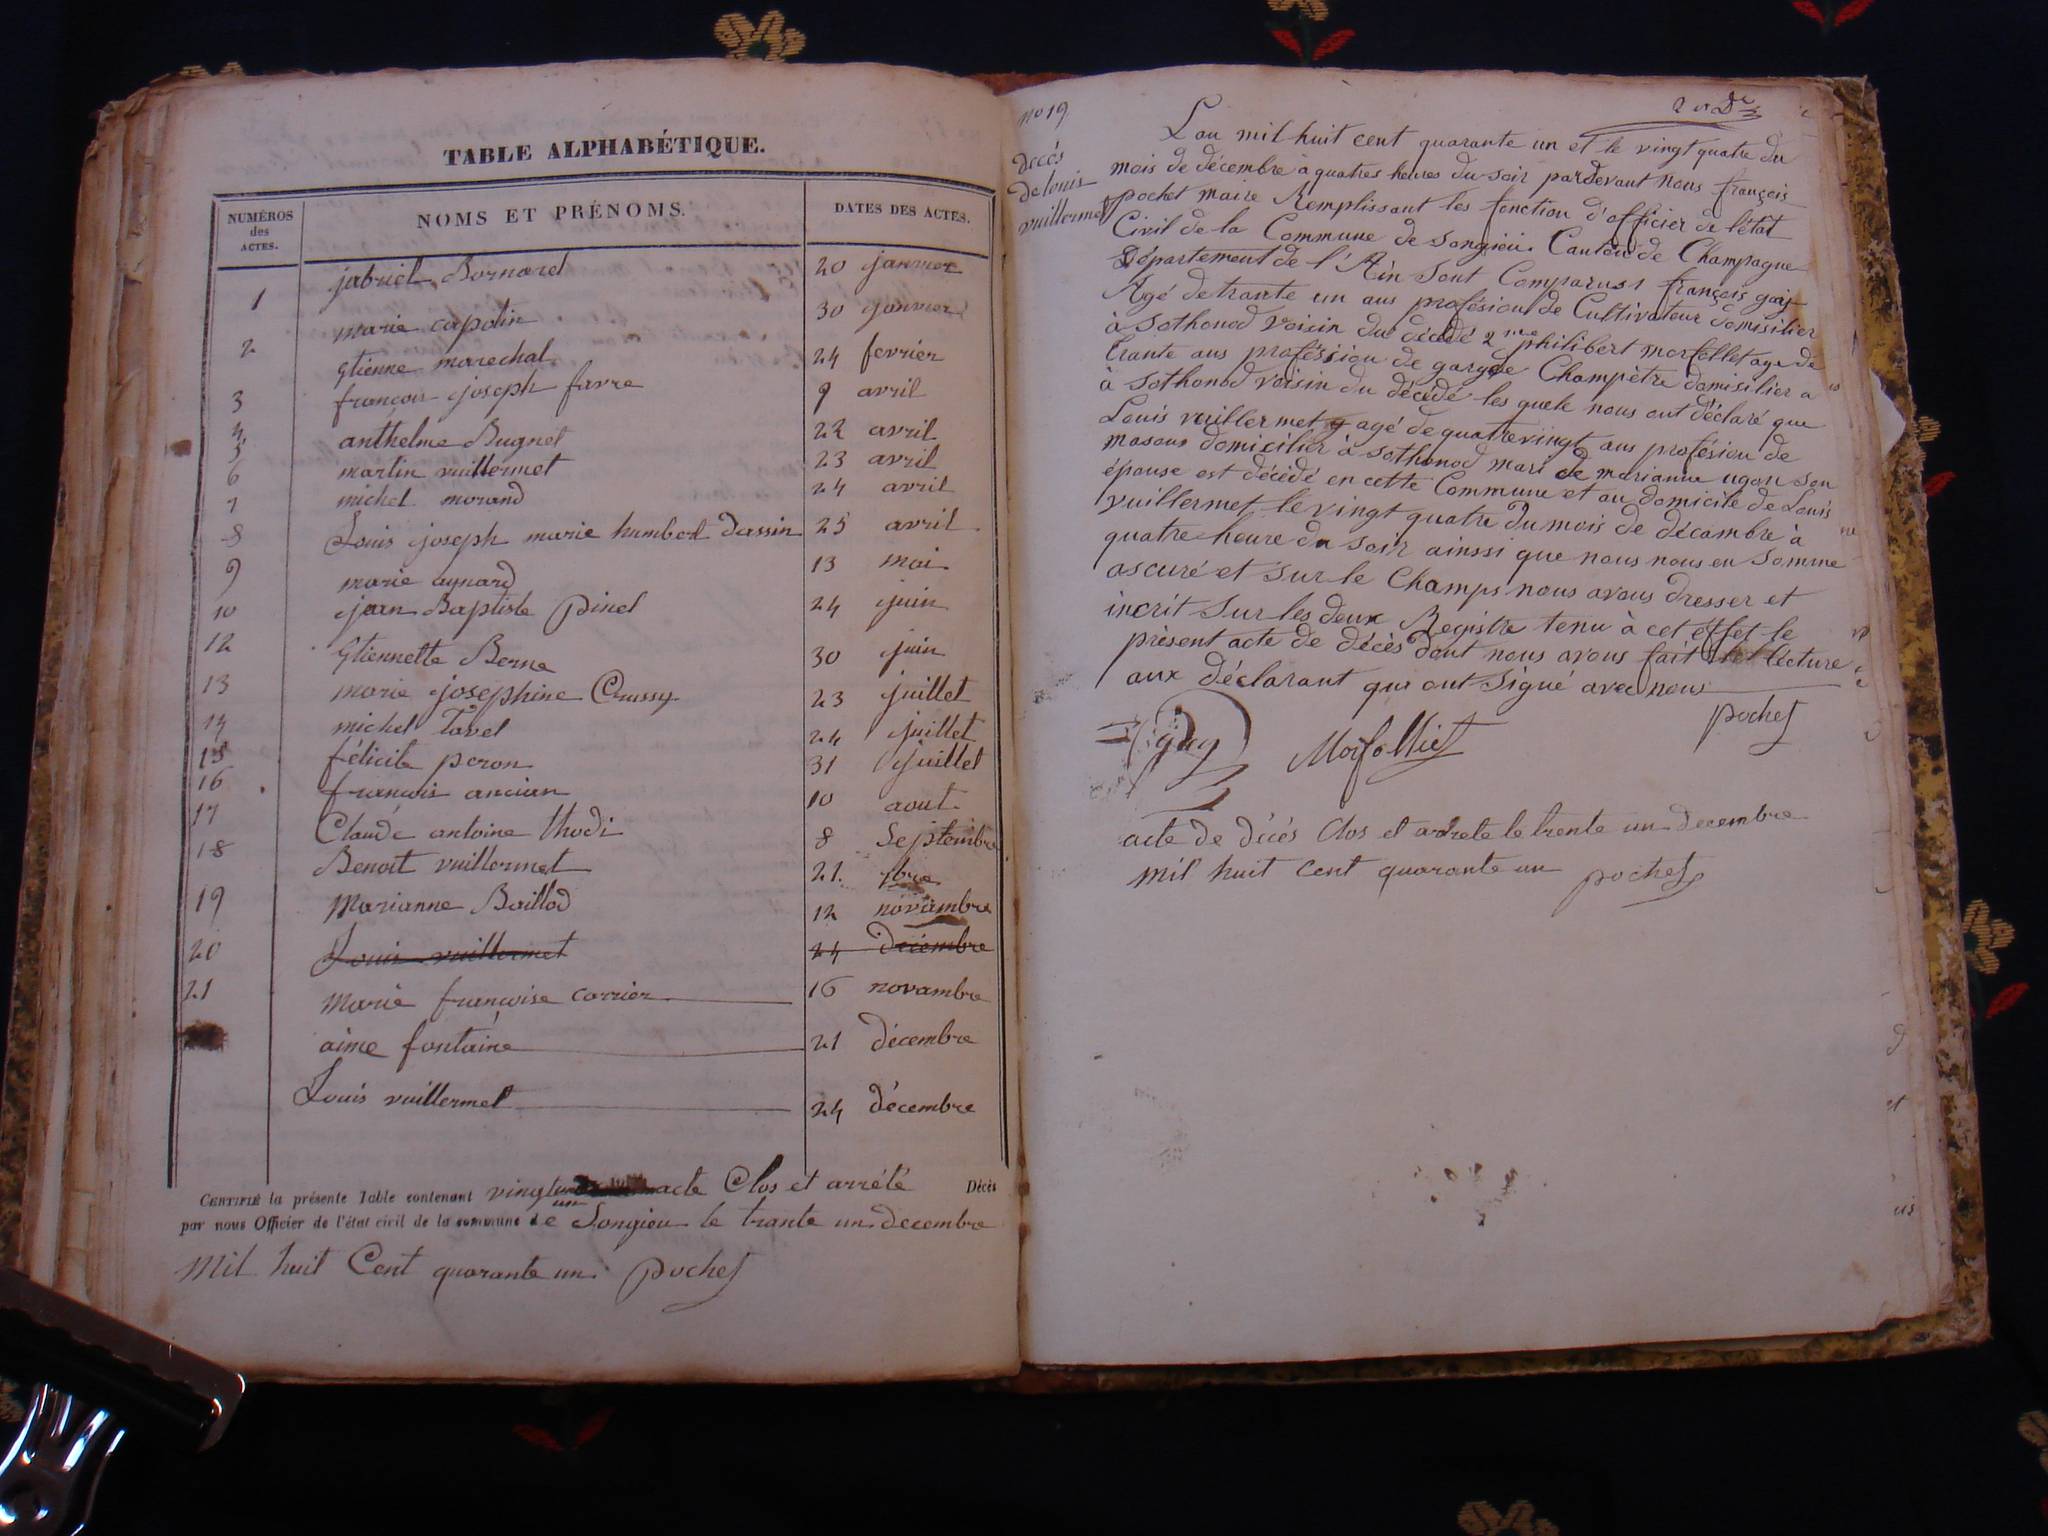 TABLE ALPHABÉTIQUE.
NUMÉROS des ACTES. NOMS ET PRÉNOMS. DATES DES ACTES.
1 jabriel Bornard 20 janvier
2 marie capolin 30 janvier
Etienne marechal 24 fevrier
3 francois joseph favre 9 avril
4 anthelme Bugnet 22 avril
5 martin vuillermet 23 avril
6 michel morand 24 avril
7
8 Louis joseph marie humbert Dassin 25 avril
9 marie aynard 13 mai
10 jean Baptiste pinel 24 juin
12 Etiennette Berne 30 juin
13 marie josephine Chussy 23 juillet
14 michel Tavel 24 juillet
15 félicite peron 31 juillet
16 francois ancian 10 aout
17 Claude antoine thodi 8 Septembre
18 Benoit vuillermet 21
19 Marianne Baillod 12 novambre
20 Louis vuillermet 24 decembre
21 Marie françoise carrier 16 novambre
aime fontaine 21 décembre
Louis vuillermet 24 décembre
CERTIFIÉ la présente Table contenant vingt un acte Clos et arrété Décès
par nous Officier de l'état civil de la commune de Songieu le trante un decembre
Mil huit Cent quarante un pochet
no 19
décés
de louis
vuillermet
Lan mil huit cent quarante un et le vingt quatre du
mois de décembre à quatres heures du soir pardevant nous françois
pochet maire Remplissant les fonction d'officier de l'état
Civil de la Commune de Songieu. Canton de Champagne
Département de l'Ain Sont Comparus 1 françois guy
Agé de trante un ans profésion de Cultivateur domisilier
à Sothonod voisin du décédé 2me philibert morfollet age de
trante ans profésion de gargde Champètre domisilier a
à Sothonod voisin du décédé les quels nous ont déclaré que
Louis vuillermet agé de quatrevingt ans profésion de
masons domicilier à Sothonod mari de marianne ugon son
épouse est décédé en cette Commune et au domicile de Louis
vuillermet le vingt quatre du mois de décambre à
quatre heure du soir ainssi que nous nous en Somme
ascuré et Sur le Champs nous avons dresser et
incrit Sur les deux Registre tenu à cet effet le
présent acte de décès dont nous avons fait lecture
aux déclarant qui ont Signé avec nous
guy Morfolliet pochet
acte de décés Clos et arrete le trente un decembre
mil huit Cent quarante un pochet